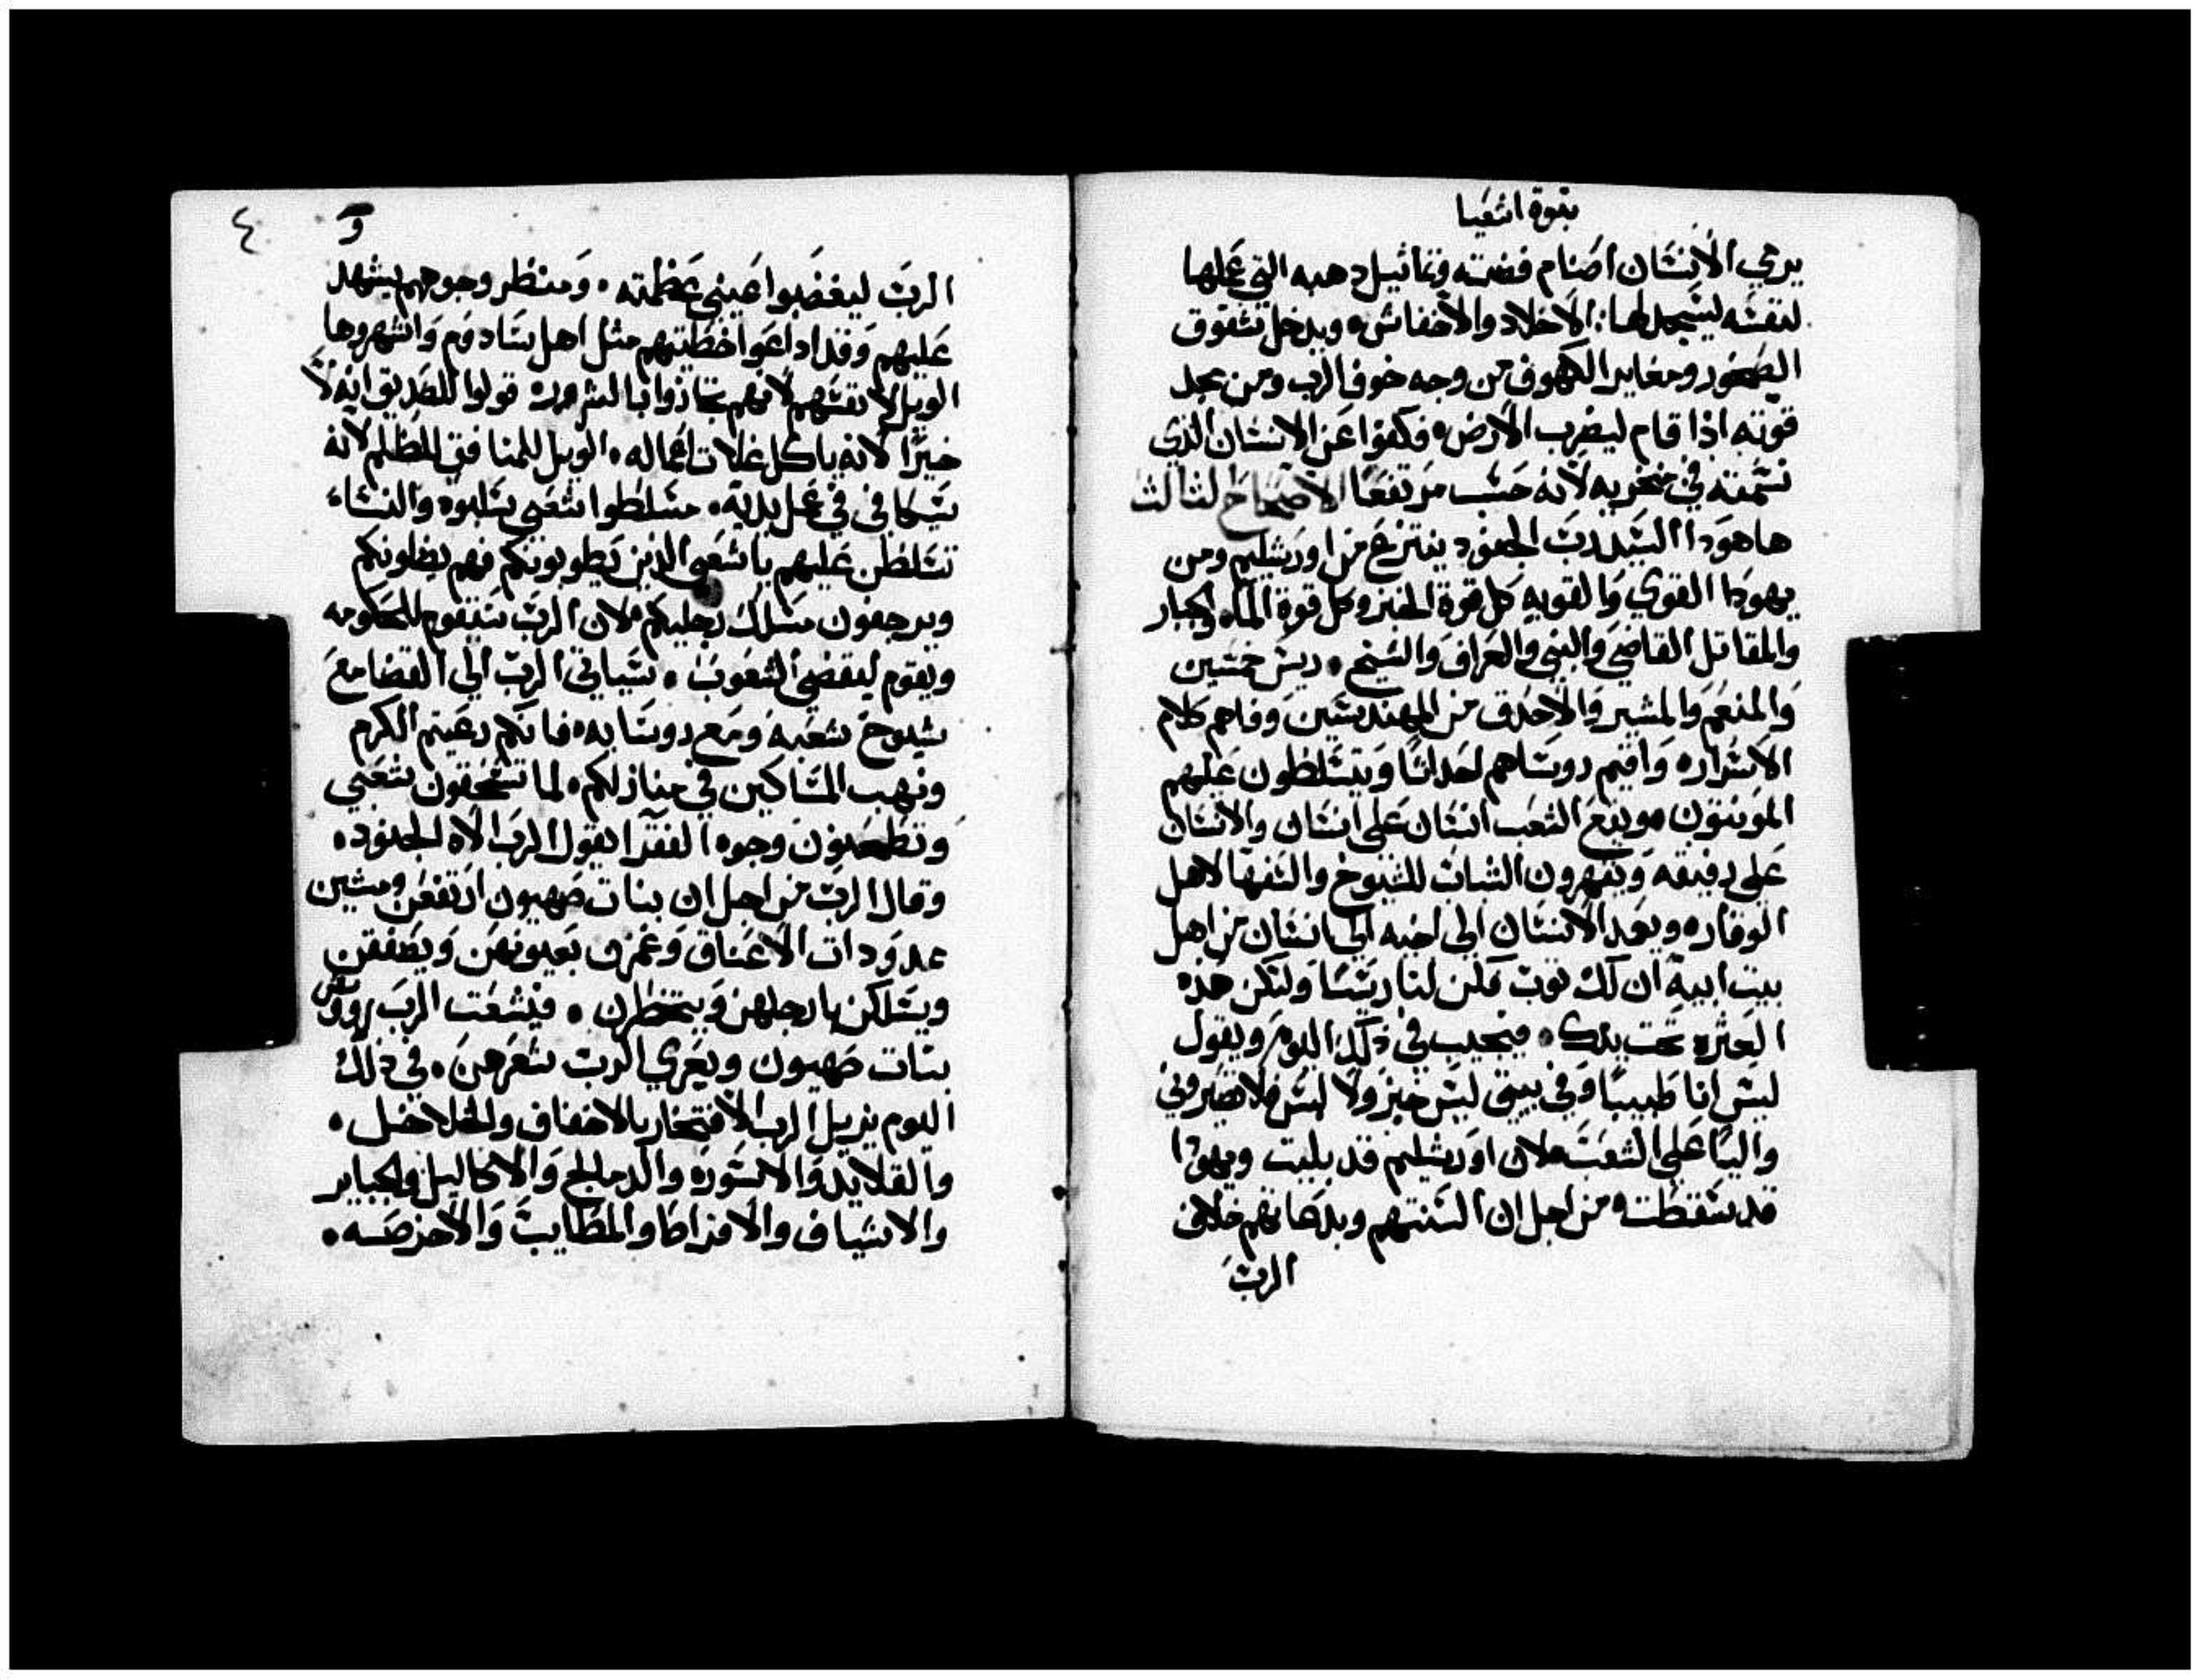 نبوة اشعيا
يرمي الانسان اصنام فضته وتماثيل دهبه التي عملها
لنفسه ليسجد لها: الاخلاد والاخفاش، ويدخل شقوق
الصخور ومغاير الكهوف من وجه خوف الرب ومن مجد
قوته اذا قام ليضرب الارض، فكفوا عن الانسان الذي
نسمته في منخريه لانه حسب مرتفعًا الاصحاح الثالث
ها هودا السيد رب الجنود ينتزع من اورشليم ومن
يهودا القوي والقويه كل قوة الخبز وكل قوة الماء، الجبار
والمقاتل القاضي والنبي والعراف والشيخ، ريس خمسين
والمنعم والمشير والاحدق من المهندسين وفاهم كلام
الاسرار، واقيم روساهم احداثًا ويتسلطون عليهم
الموينتون، ويقع الشعب انسان على انسان والانسان
على رفيقه ويقهرون الشاب للشيوخ والسفها لاهل
الوقار، ويعد الانسان الي اخيه الي انسان من اهل
بيت ابيه ان لك توب فكن لنا ريسًا ولتكن هذه
العثره تحت يدك، فيجيب في ذلك اليوم ويقول
ليس انا طبيبًا وفي بيتي ليس خبز ولا لبس فلا تصيروني
واليًا على الشعب، لان اورشليم قد بليت ويهودا
قد سقطت، من اجل ان السنتهم وبدعاتهم خلاف
الرب
٤
الرب ليغضبوا عيني عظمته، ومنظر وجوههم يشهد
عليهم وقد اداعوا خطيتهم مثل اهل سادوم واشهروها
الويل لانفسهم لانهم تجازوا بالشرور، قولوا للصديق انه لا
خيرًا لانه ياكل غلات اعماله، الويل للمنافق للظلم لانه
سيكافى في عمل يديه، مسلطوا شعبي سلبوه والنساء
تسلطن عليهم يا شعبي الذين يطوبونكم فهم يضلونكم
ويرجفون مسلك رجليكم، لان الرب سيقوم للحكومه
ويقوم ليقضي الشعوب، سياتي الرب الي القضا مع
شيوخ شعبه ومع روسايه، فانكم رعيتم الكرم
ونهب المساكين في منازلكم، لما تسحقون شعبي
وتطحنون وجوه الفقرا يقول الرب الاه الجنود،
وقال الرب من اجل ان بنات صهيون ارتفعن ومشين
ممدودات الاعناق وغمزن بعيونهن ويصفقن
ويسلكن بارجلهن ويتخطرن، فيشعت الرب رووس
بنات صهيون ويعري الرب شعرهن، في ذلك
اليوم يزيل الرب الافتخار بالاخفاف والخلاخل،
والقلايد والاسوره والدمالج والاكاليل والجباير
والاسياف والاقراط والمطايب والاخرصه،